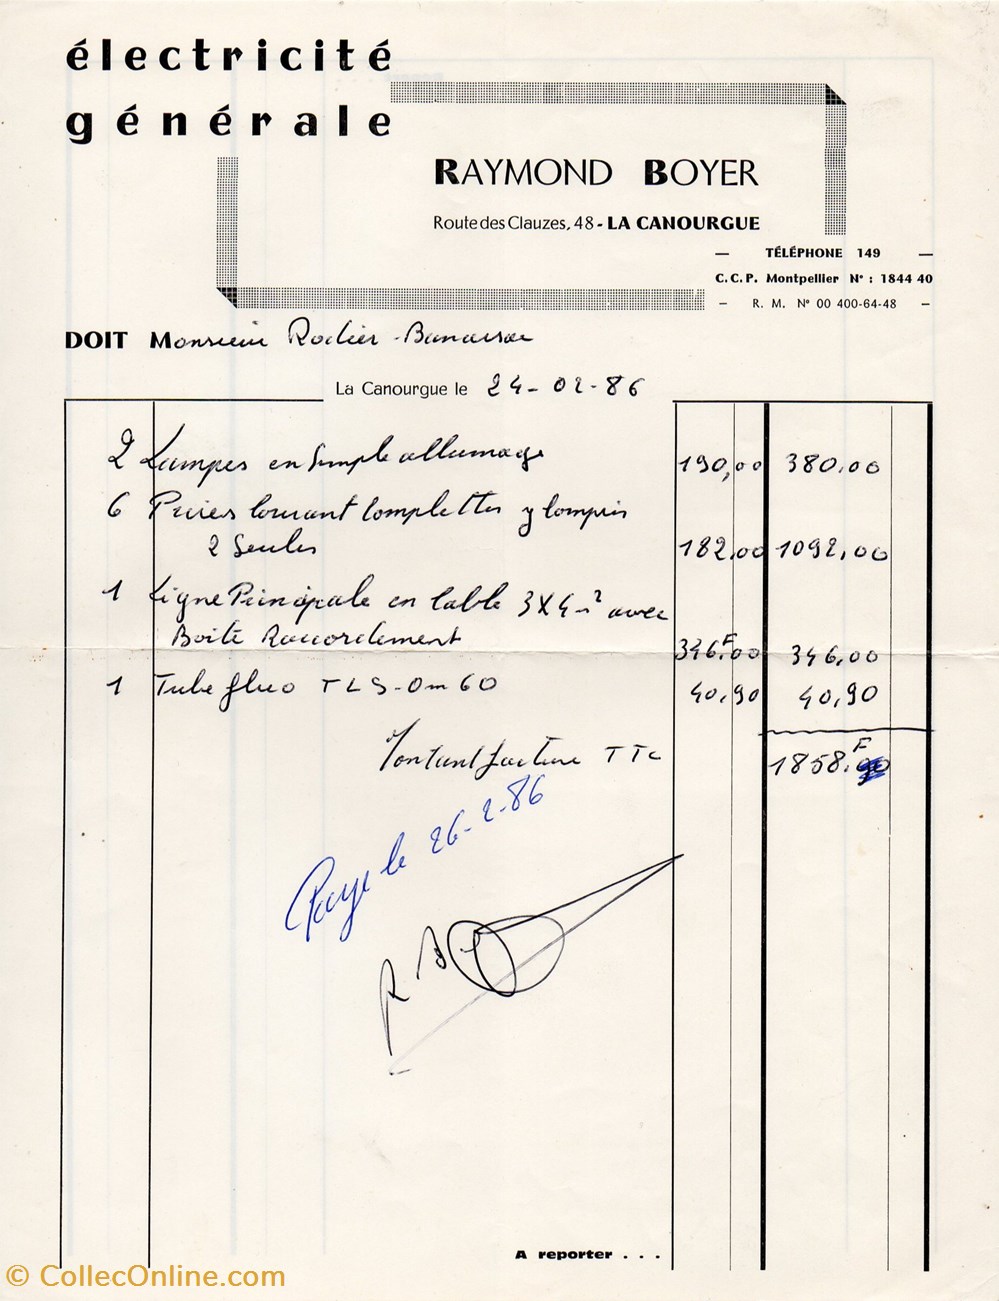 électricité
générale
RAYMOND BOYER
Route des Clauzes, 48 - LA CANOURGUE
— TÉLÉPHONE 149 —
C.C.P. Montpellier N° : 1844 40
– R. M. N° 00 400-64-48 –
DOIT Monsieur Rodier - Banassac
La Canourgue le 24-02-86
2 Lampes en Simple allumage 190,00 380,00
6 Prises Courant Complettes y Compris
2 Seules 182,00 1092,00
1 Ligne Principale en Cable 3X4m² avec
Boite Raccordement 346F,00 346,00
1 Tube fluo TLS-0m60 40,90 40,90
Montant facture TTC 1858F,90
Paye le 26-2-86
A reporter . . .
© CollecOnline.com